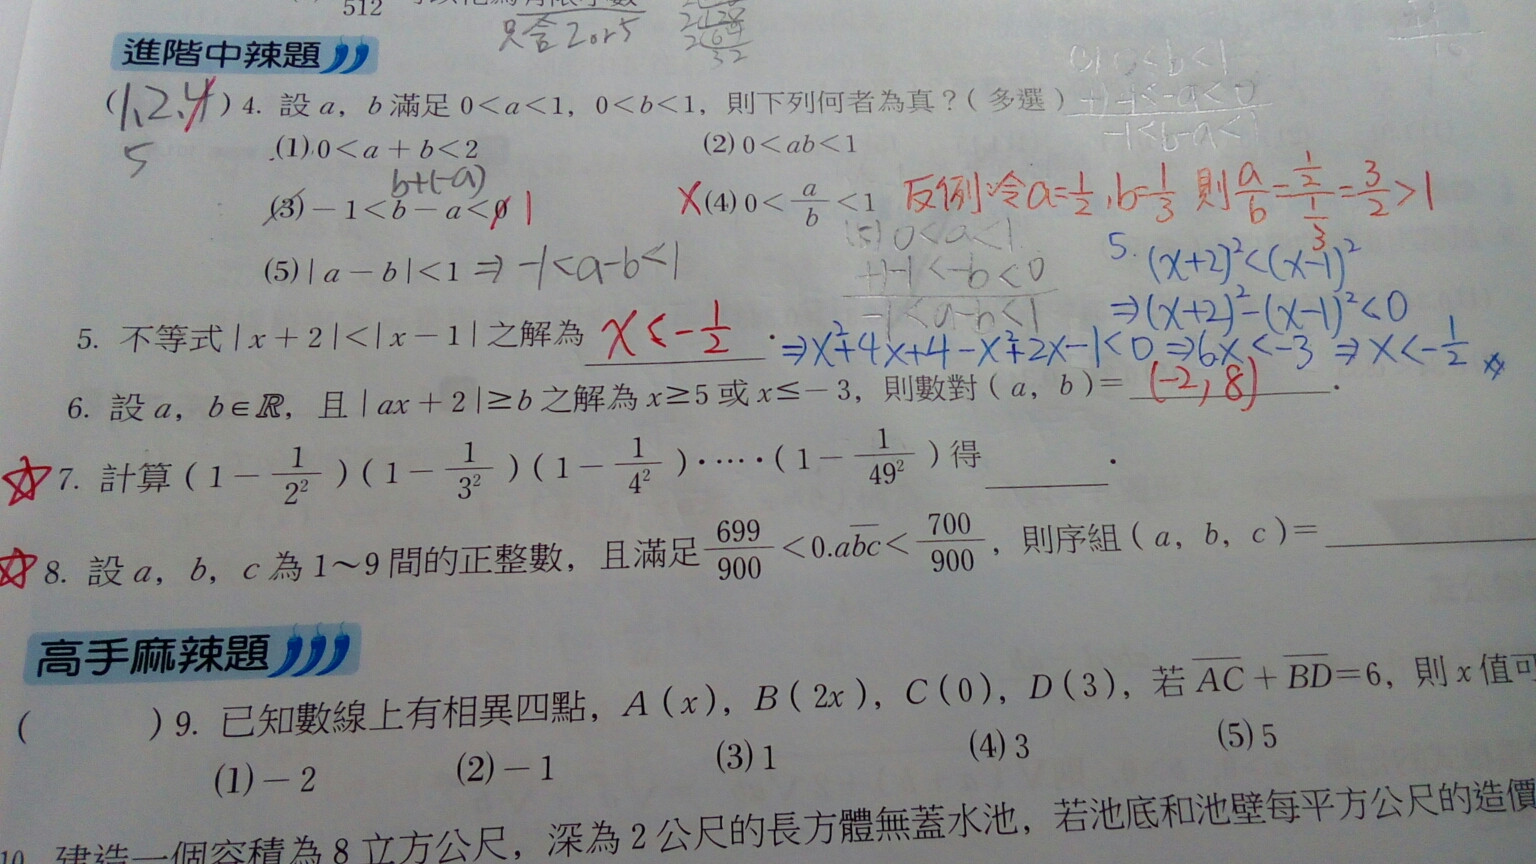 512
只含2or5
2 128
2 64
32
進階中辣題
(1,2,4) 4. 設 a, b 滿足 0<a<1, 0<b<1, 則下列何者為真？(多選)
5
0<b<1
+) -1<-a<0
-1<b-a<1
(1) 0<a+b<2 (2) 0<ab<1
b+(-a)
(3) -1<b-a<0 1 X (4) 0<a/b<1 反例:令a=1/2, b=1/3 則 a/b = (1/2)/(1/3) = 3/2 >1
(5) |a-b|<1 ⇒ -1<a-b<1
(5) 0<a<1
+) -1<-b<0
-1<a-b<1
5. (x+2)²<(x-1)²
⇒(x+2)²-(x-1)²<0
⇒x²+4x+4-x²+2x-1<0 ⇒6x<-3 ⇒ x<-1/2
5. 不等式 |x+2|<|x-1| 之解為 x<-1/2.
6. 設 a, b∈ℝ, 且 |ax+2|≥b 之解為 x≥5 或 x≤-3, 則數對 (a, b)= (-2, 8).
☆ 7. 計算 (1-1/2²)(1-1/3²)(1-1/4²)·····(1-1/49²) 得 .
☆ 8. 設 a, b, c 為 1~9 間的正整數, 且滿足 699/900 <0.a\overline{bc}< 700/900, 則序組 (a, b, c)=
高手麻辣題
( ) 9. 已知數線上有相異四點, A(x), B(2x), C(0), D(3), 若 \overline{AC}+\overline{BD}=6, 則 x 值可
(1) -2 (2) -1 (3) 1 (4) 3 (5) 5
10. 建造一個容積為 8 立方公尺, 深為 2 公尺的長方體無蓋水池, 若池底和池壁每平方公尺的造價